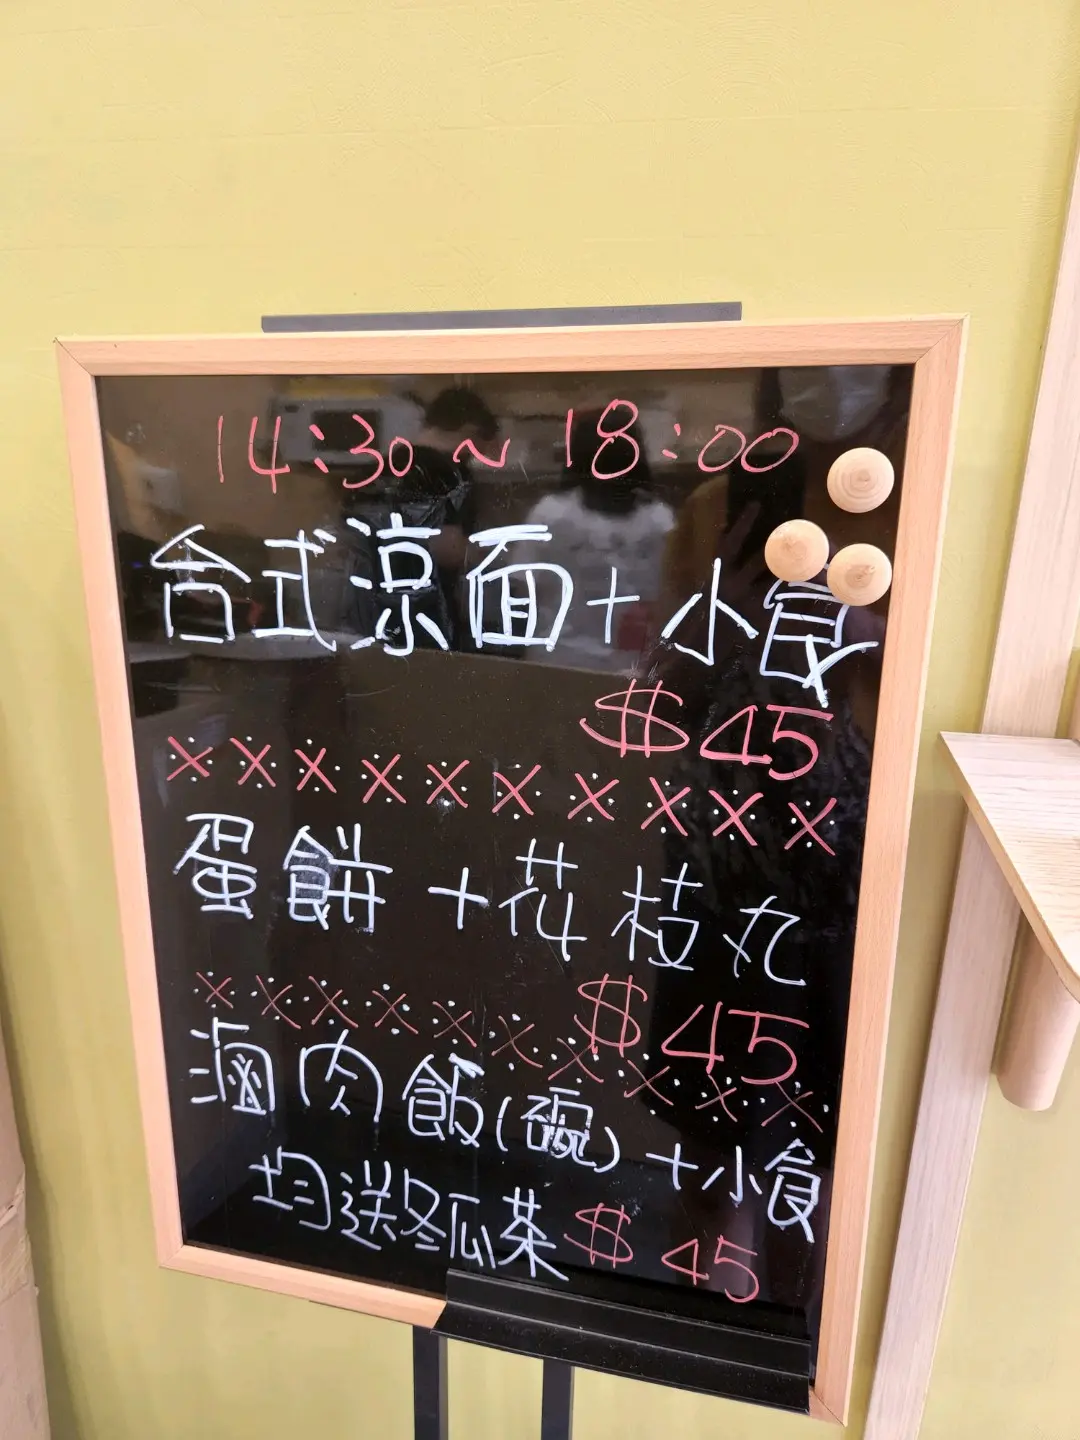 14:30~18:00
台式凉面+小食
$45
蛋餅+花枝丸
$45
滷肉飯(碗)+小食
均送冬瓜茶$45